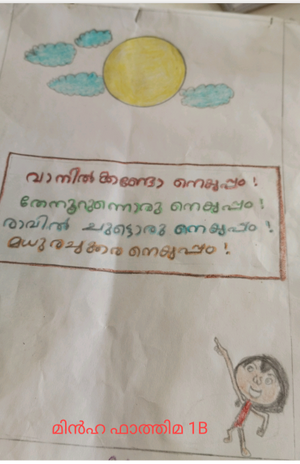 വാനിൽക്കണ്ടോ നെയ്യപ്പം !
തേനൂറുന്നൊരു നെയ്യപ്പം !
രാവിൽ ചുട്ടൊരു നെയ്യപ്പം !
മധുരചക്കര നെയ്യപ്പം !
മിൻഹ ഫാത്തിമ 1B